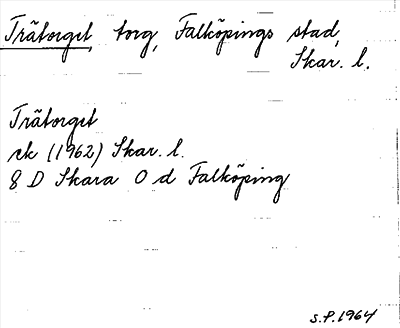 Trätorget, torg, Falköpings stad,
Skar. l.
Trätorget
ek (1962) Skar. l.
8 D Skara O d Falköping
S.P. 1964